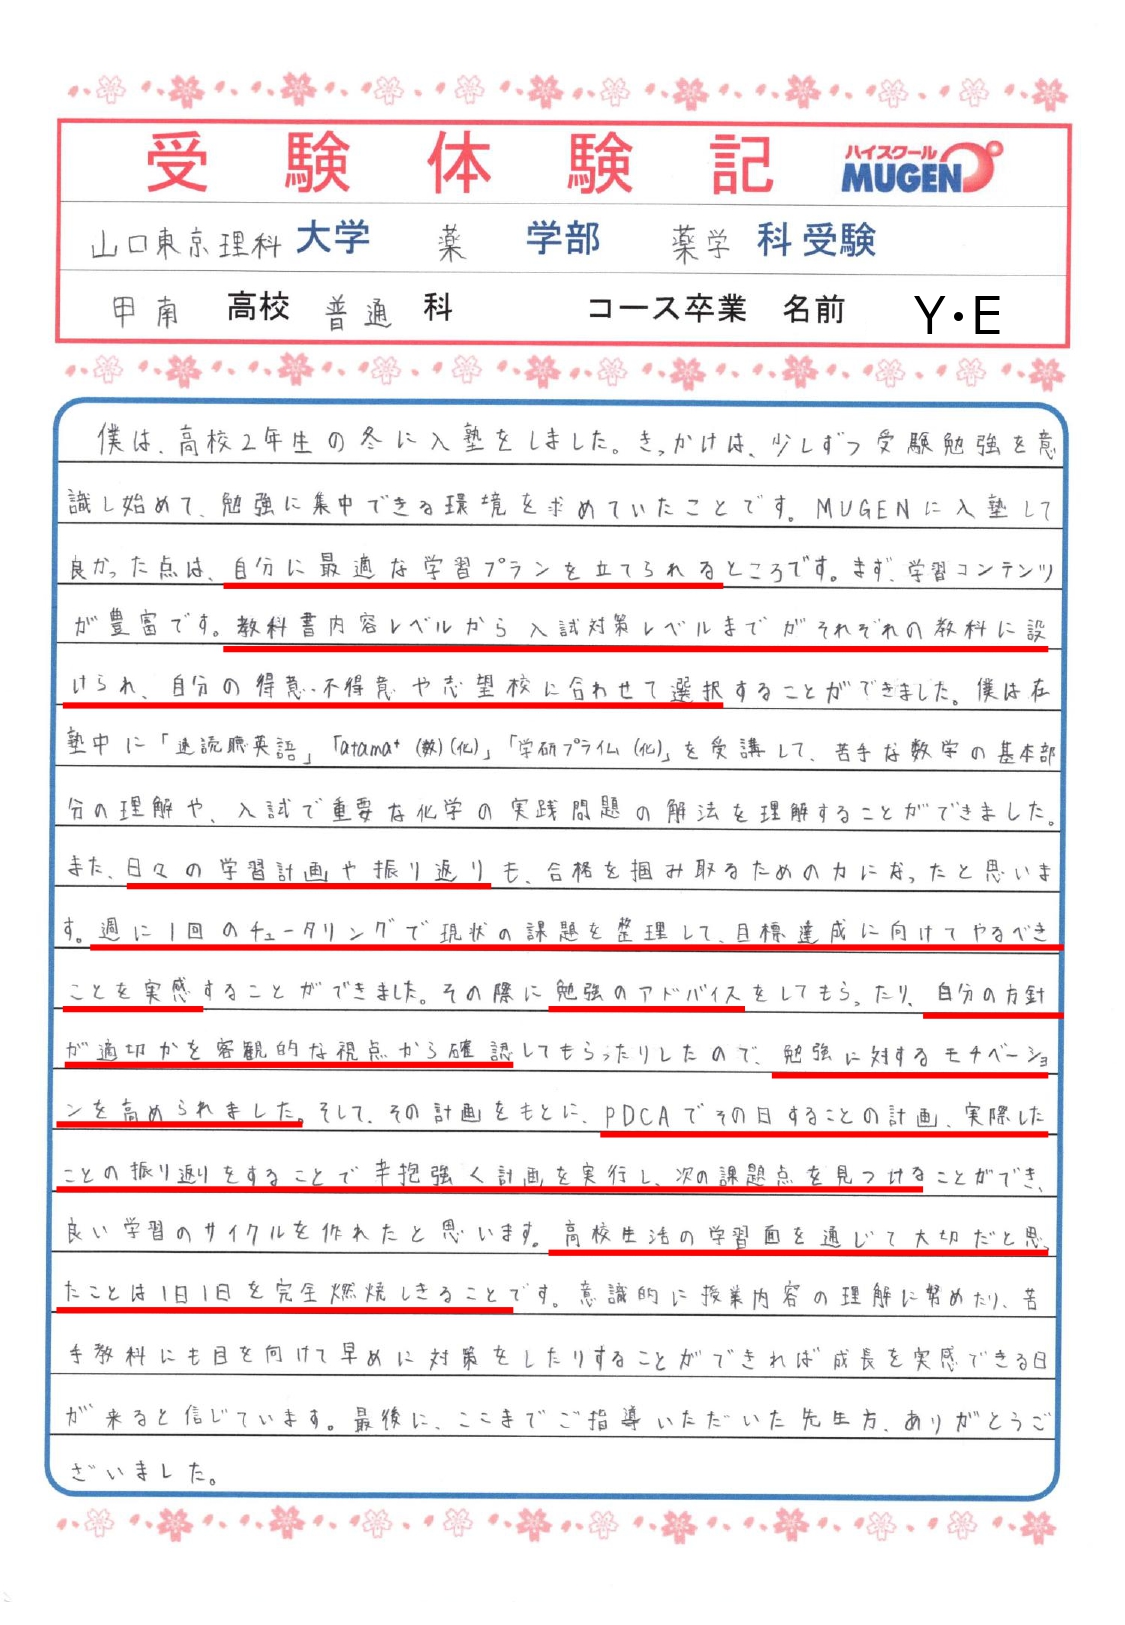 受験体験記 ハイスクール MUGEN
山口東京理科 大学 薬 学部 薬学 科 受験
甲南 高校 普通 科 コース卒業 名前 Y・E
僕は、高校2年生の冬に入塾をしました。きっかけは、少しずつ受験勉強を意
識し始めて、勉強に集中できる環境を求めていたことです。MUGENに入塾して
良かった点は、自分に最適な学習プランを立てられるところです。まず、学習コンテンツ
が豊富です。教科書内容レベルから入試対策レベルまでがそれぞれの教科に設
けられ、自分の得意・不得意や志望校に合わせて選択することができました。僕は在
塾中に「速読聴英語」「atama+(数)(化)」「学研プライム(化)」を受講して、苦手な数学の基本部
分の理解や、入試で重要な化学の実践問題の解法を理解することができました。
また、日々の学習計画や振り返りも、合格を掴み取るための力になったと思いま
す。週に1回のチュータリングで現状の課題を整理して、目標達成に向けてやるべき
ことを実感することができました。その際に勉強のアドバイスをしてもらったり、自分の方針
が適切かを客観的な視点から確認してもらったりしたので、勉強に対するモチベーショ
ンを高められました。そして、その計画をもとに、PDCAでその日することの計画、実際した
ことの振り返りをすることで辛抱強く計画を実行し、次の課題点を見つけることができ、
良い学習のサイクルを作れたと思います。高校生活の学習面を通じて大切だと思っ
たことは1日1日を完全燃焼しきることです。意識的に授業内容の理解に努めたり、苦
手教科にも目を向けて早めに対策をしたりすることができれば成長を実感できる日
が来ると信じています。最後に、ここまでご指導いただいた先生方、ありがとうご
ざいました。